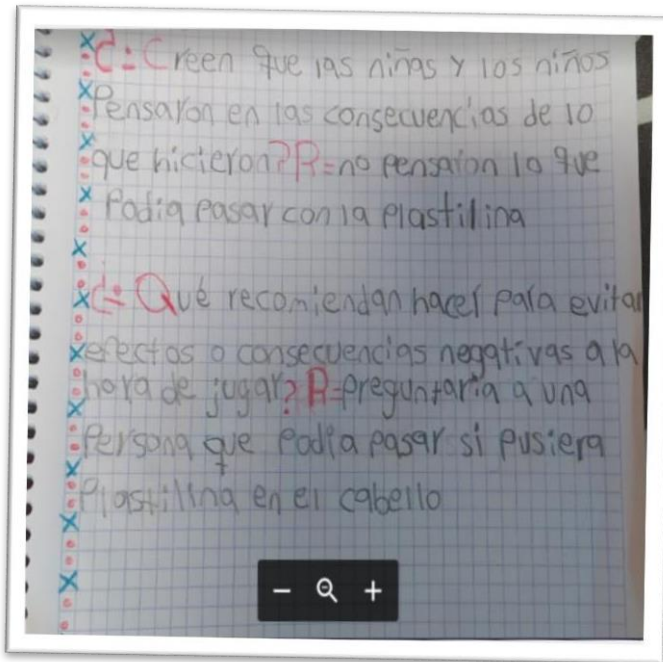 ¿: Creen que las niñas y los niños
Pensaron en las consecuencias de lo
que hicieron? R=no pensaron lo que
Podia pasar con la plastilina
¿: Qué recomiendan hacer para evitar
efectos o consecuencias negativas a la
hora de jugar? R=preguntaria a una
Persona que podia pasar si pusiera
Plastilina en el cabello